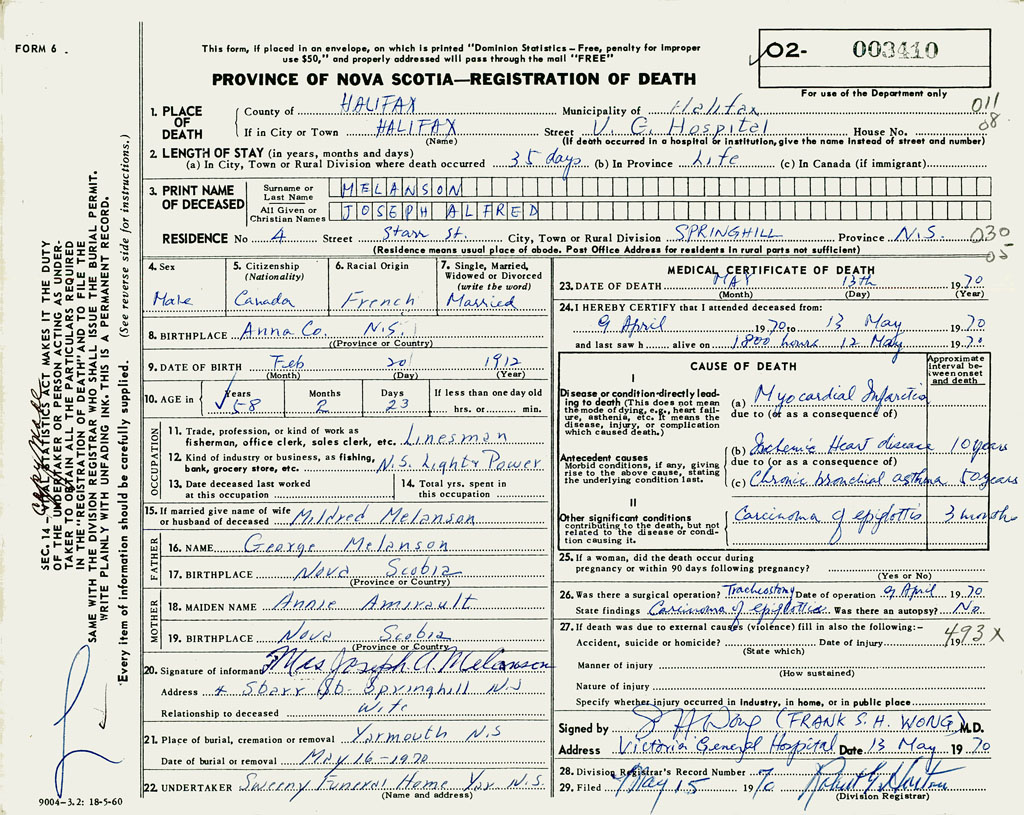 FORM 6
This form, if placed in an envelope, on which is printed "Dominion Statistics – Free, penalty for improper
use $50," and properly addressed will pass through the mail "FREE"
PROVINCE OF NOVA SCOTIA—REGISTRATION OF DEATH
02- 003410
For use of the Department only
011
08
1. PLACE OF DEATH
County of HALIFAX Municipality of Halifax
If in City or Town HALIFAX Street V. G. Hospital House No.
(Name) (If death occurred in a hospital or institution, give the name instead of street and number)
2. LENGTH OF STAY (in years, months and days)
(a) In City, Town or Rural Division where death occurred 35 days (b) In Province Life (c) In Canada (if immigrant)
3. PRINT NAME OF DECEASED
Surname or Last Name MELANSON
All Given or Christian Names JOSEPH ALFRED
RESIDENCE No 4 Street Starr St. City, Town or Rural Division SPRINGHILL Province N.S. 030
05
(Residence means usual place of abode. Post Office Address for residents in rural parts not sufficient)
4. Sex Male
5. Citizenship (Nationality) Canada
6. Racial Origin French
7. Single, Married, Widowed or Divorced (write the word) Married
8. BIRTHPLACE Anna Co. N.S.
(Province or Country)
9. DATE OF BIRTH Feb 20 1912
(Month) (Day) (Year)
10. AGE in Years 58 Months 2 Days 23 If less than one day old hrs. or min.
OCCUPATION
11. Trade, profession, or kind of work as
fisherman, office clerk, sales clerk, etc. Linesman
12. Kind of industry or business, as fishing,
bank, grocery store, etc. N.S. Light & Power
13. Date deceased last worked
at this occupation
14. Total yrs. spent in
this occupation
15. If married give name of wife
or husband of deceased Mildred Melanson
FATHER
16. NAME George Melanson
17. BIRTHPLACE Nova Scotia
(Province or Country)
MOTHER
18. MAIDEN NAME Annie Amirault
19. BIRTHPLACE Nova Scotia
(Province or Country)
20. Signature of informant Mrs Joseph A. Melanson
Address Springhill N.S
Relationship to deceased Wife
21. Place of burial, cremation or removal Yarmouth N.S
Date of burial or removal May 16-1970
22. UNDERTAKER Sweeny Funeral Home Yar N.S.
(Name and address)
9004-3.2: 18-5-60
MEDICAL CERTIFICATE OF DEATH
23. DATE OF DEATH MAY 13th 1970
(Month) (Day) (Year)
24. I HEREBY CERTIFY that I attended deceased from:
9 April 1970 to 13 May 1970
and last saw h alive on 1800 hours 12 May 1970
CAUSE OF DEATH
Approximate interval between onset and death
I
Disease or condition directly leading to death (This does not mean the mode of dying, e.g., heart failure, asthenia, etc. It means the disease, injury, or complication which caused death.)
(a) Myocardial Infarction
due to (or as a consequence of)
Antecedent causes
Morbid conditions, if any, giving rise to the above cause, stating the underlying condition last.
(b) Ischemic Heart disease 10 years
due to (or as a consequence of)
(c) Chronic bronchial asthma 50 years
II
Other significant conditions
contributing to the death, but not related to the disease or condition causing it.
Carcinoma of epiglottis 3 months
25. If a woman, did the death occur during
pregnancy or within 90 days following pregnancy?
(Yes or No)
26. Was there a surgical operation? Tracheostomy Date of operation 9 April 1970
State findings Carcinoma of epiglottis Was there an autopsy? No.
27. If death was due to external causes (violence) fill in also the following:-
493X
Accident, suicide or homicide? Date of injury 19
(State which)
Manner of injury
(How sustained)
Nature of injury
Specify whether injury occurred in industry, in home, or in public place
Signed by S H Wong (FRANK S. H. WONG) M.D.
Address Victoria General Hospital Date 13 May 1970
28. Division Registrar's Record Number
29. Filed May 15 1970
(Division Registrar)
SEC. 14 – VITAL STATISTICS ACT MAKES IT THE DUTY
OF THE UNDERTAKER OR PERSON ACTING AS UNDER-
TAKER TO OBTAIN ALL THE PARTICULARS REQUIRED
IN THE "REGISTRATION OF DEATH" AND TO FILE THE
SAME WITH THE DIVISION REGISTRAR WHO SHALL ISSUE THE BURIAL PERMIT.
WRITE PLAINLY WITH UNFADING INK. THIS IS A PERMANENT RECORD.
Every item of information should be carefully supplied. (See reverse side for instructions.)